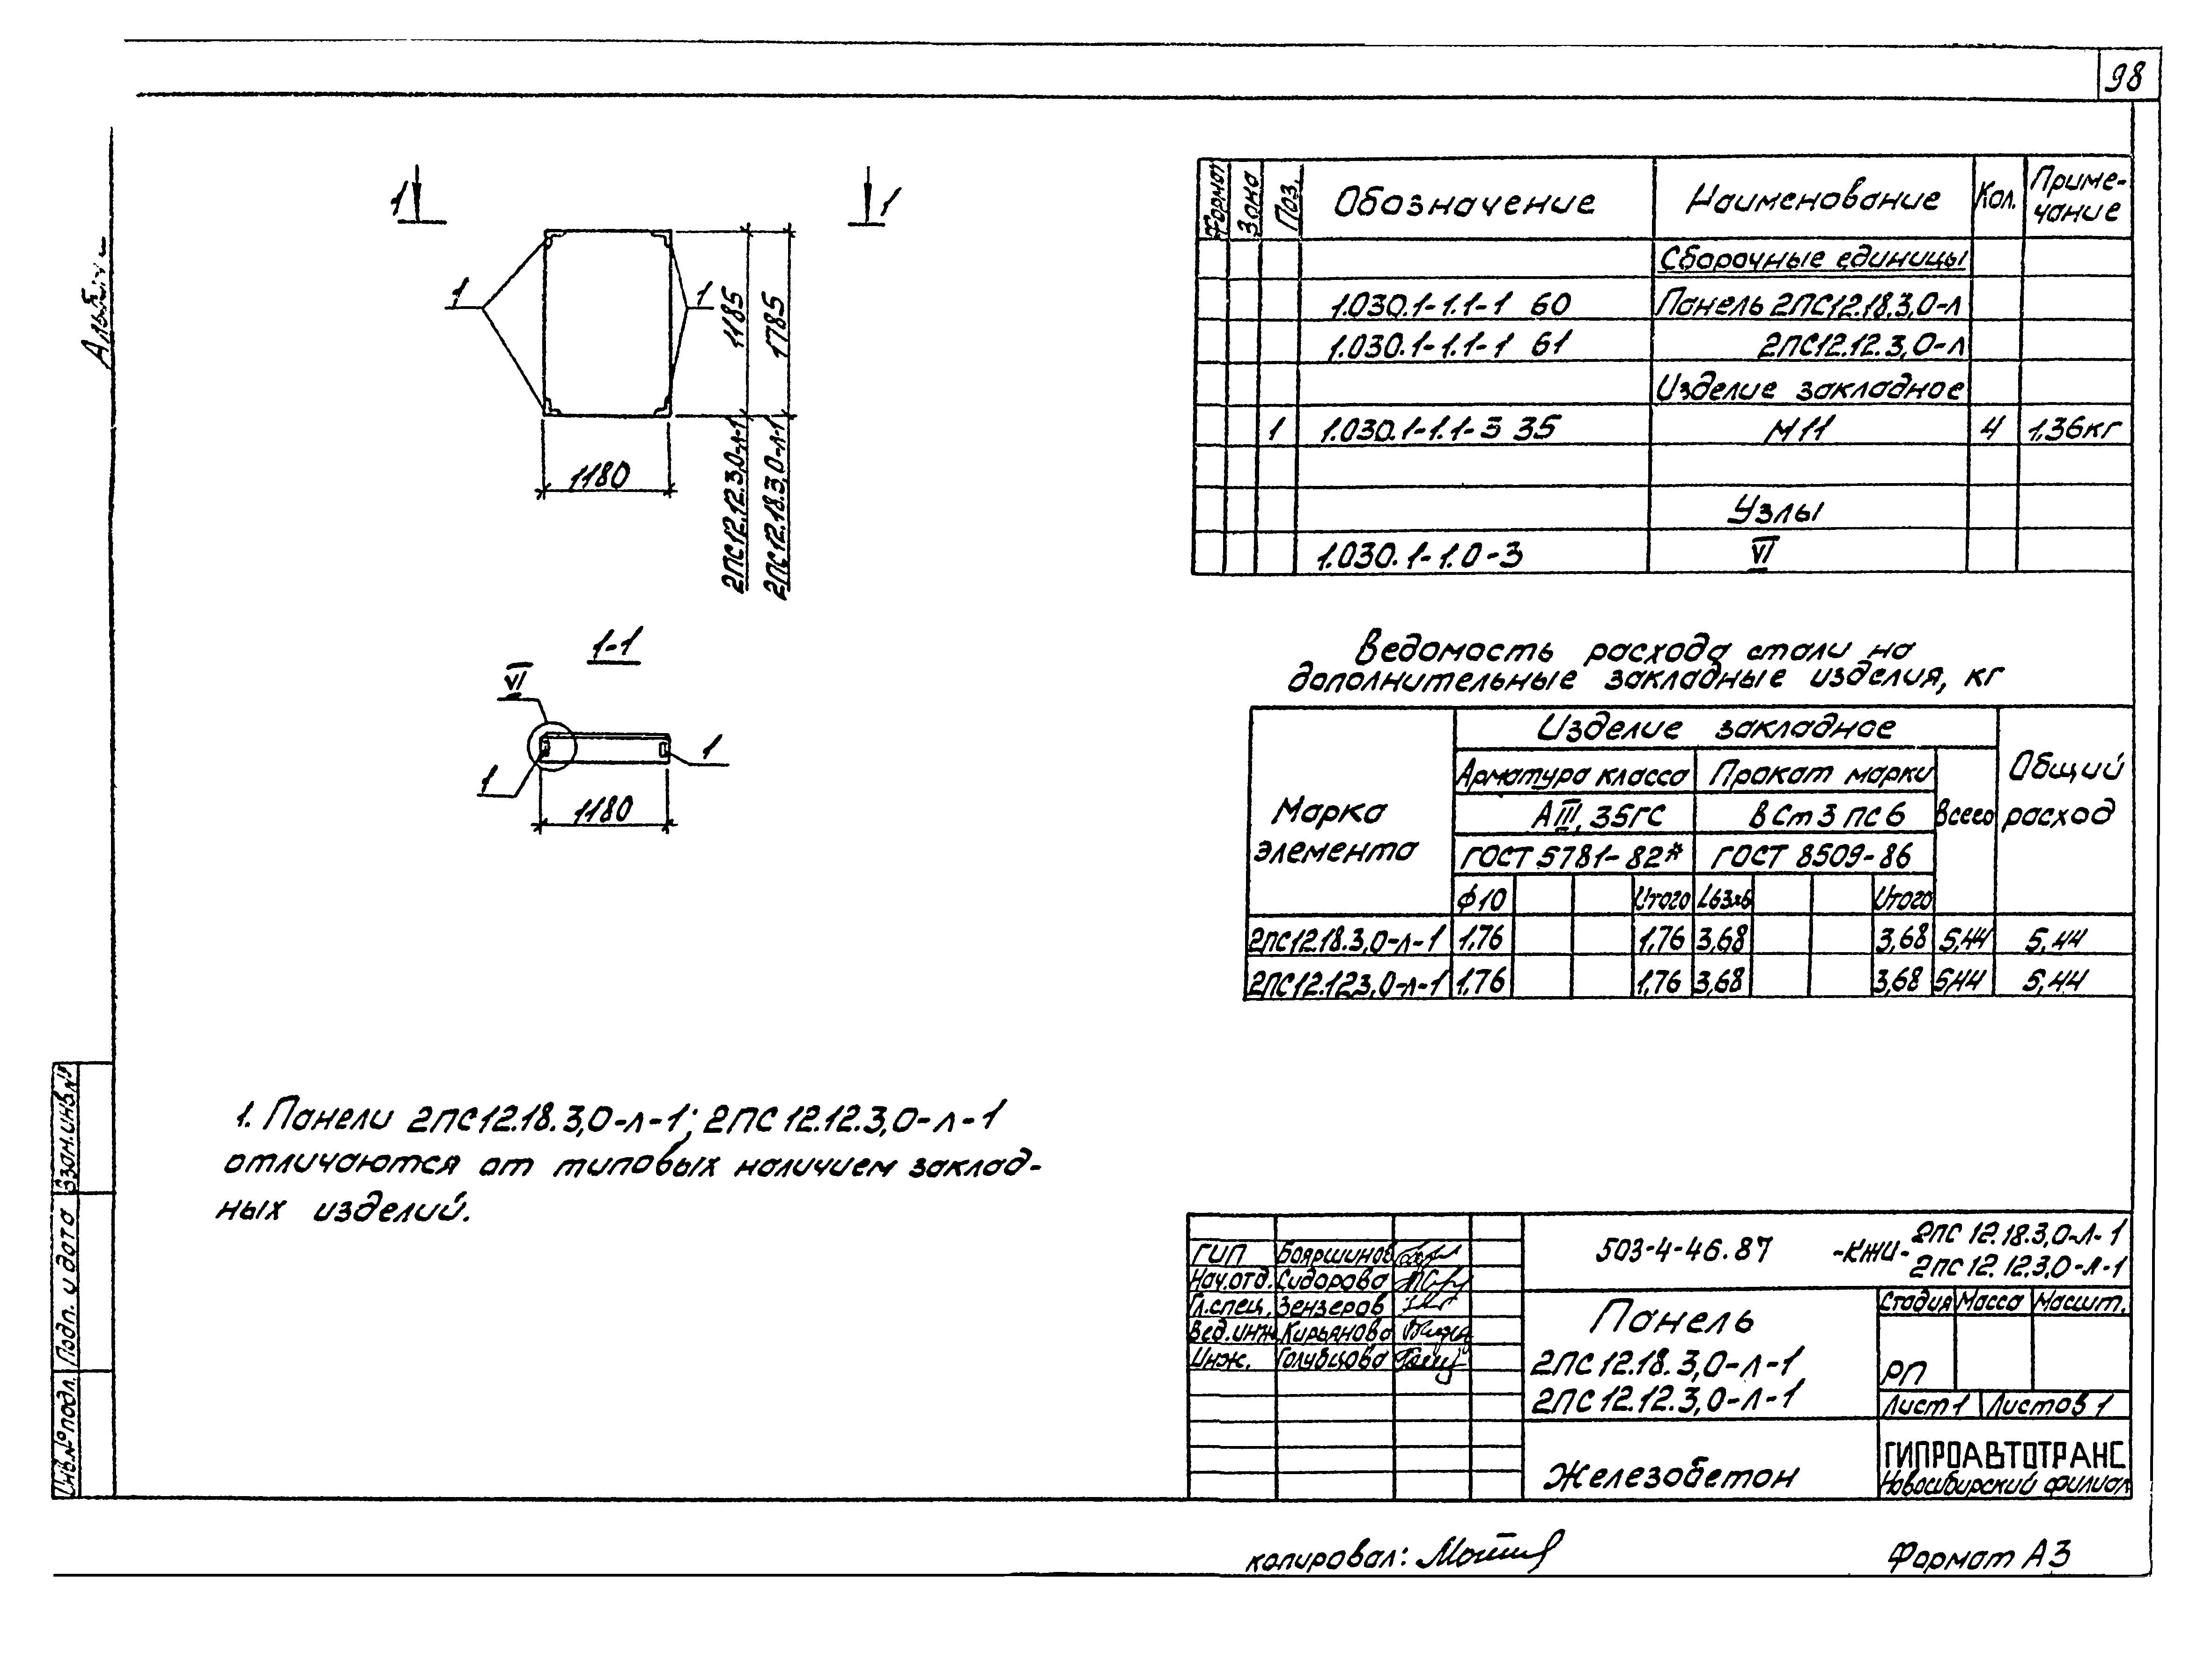 98
Альбом
1 1
1 1
1185
1785
1180
2ПС12.12.3,0-л-1
2ПС12.18.3,0-л-1
1-1
VI
1 1
1180
Формат Зона Поз. Обозначение Наименование Кол. Приме-
чание
Сборочные единицы
1.030.1-1.1-1 60 Панель 2ПС12.18.3,0-л
1.030.1-1.1-1 61 2ПС12.12.3,0-л
Изделие закладное
1 1.030.1-1.1-3 35 М11 4 1,36кг
Узлы
1.030.1-1.0-3 VI
Ведомость расхода стали на
дополнительные закладные изделия, кг
Марка
элемента
Изделие закладное
Общий
расход
Арматура класса Прокат марки
Всего
АIII, 35ГС ВСт3пс6
ГОСТ 5781-82* ГОСТ 8509-86
ф10 Итого L63х6 Итого
2ПС12.18.3,0-л-1 1,76 1,76 3,68 3,68 5,44 5,44
2ПС12.12.3,0-л-1 1,76 1,76 3,68 3,68 5,44 5,44
1. Панели 2ПС12.18.3,0-л-1; 2ПС12.12.3,0-л-1
отличаются от типовых наличием заклад-
ных изделий.
Взам.инв.№
Подп. и дата
Инв.№подл.
503-4-46.87 -КЖИ- 2ПС 12.18.3,0-Л-1
2ПС 12.12.3,0-Л-1
ГИП Бояршинов
Нач.отд. Сидорова
Гл.спец. Зензеров
Вед.инж. Кирьянова
Инж. Голубцова
Панель
2ПС12.18.3,0-Л-1
2ПС12.12.3,0-Л-1
Стадия Масса Масшт.
РП
Лист 1 Листов 1
Железобетон
ГИПРОАВТОТРАНС
Новосибирский филиал
копировал:
Формат А3